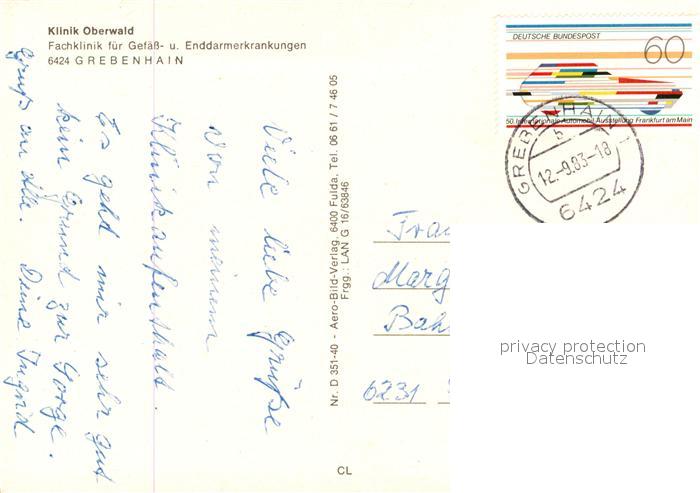 Klinik Oberwald
Fachklinik für Gefäß- u. Enddarmerkrankungen
6424 GREBENHAIN
Viele liebe Grüße
von meinem
Klinikaufenthalt.
Es geht mir sehr gut
kein Grund zur Sorge.
Gruß an alle. Deine Ingrid
Nr. D 351-40 - Aero-Bild-Verlag, 6400 Fulda, Tel. 06 61 / 7 46 05
Frgg.: LAN G 16/63846
CL
DEUTSCHE BUNDESPOST
60
50. Internationale Automobil-Ausstellung Frankfurt am Main
GREBENHAIN
b
12.-9.83-18
6424
Frau
Marg
Bah
6231
privacy protection
Datenschutz